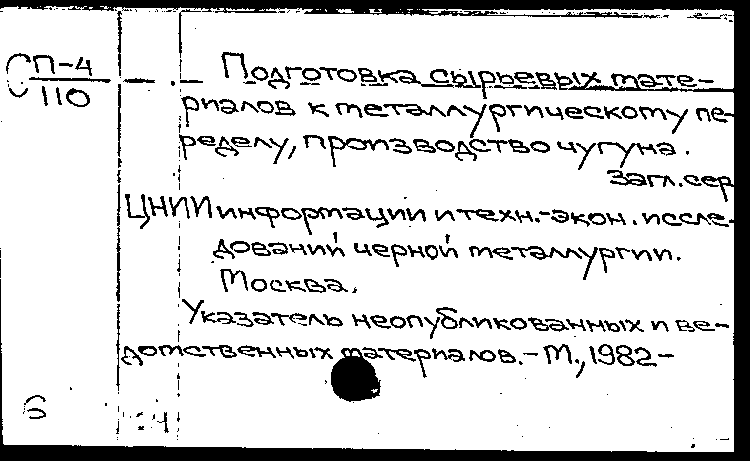 СП-4
110
Подготовка сырьевых мате-
риалов к металлургическому пе-
ределу, производство чугуна.
Загл. сер
ЦНИИ информации и техн.-экон. иссле-
дований черной металлургии.
Москва.
Указатель неопубликованных и ве-
домственных материалов.-М., 1982-
6